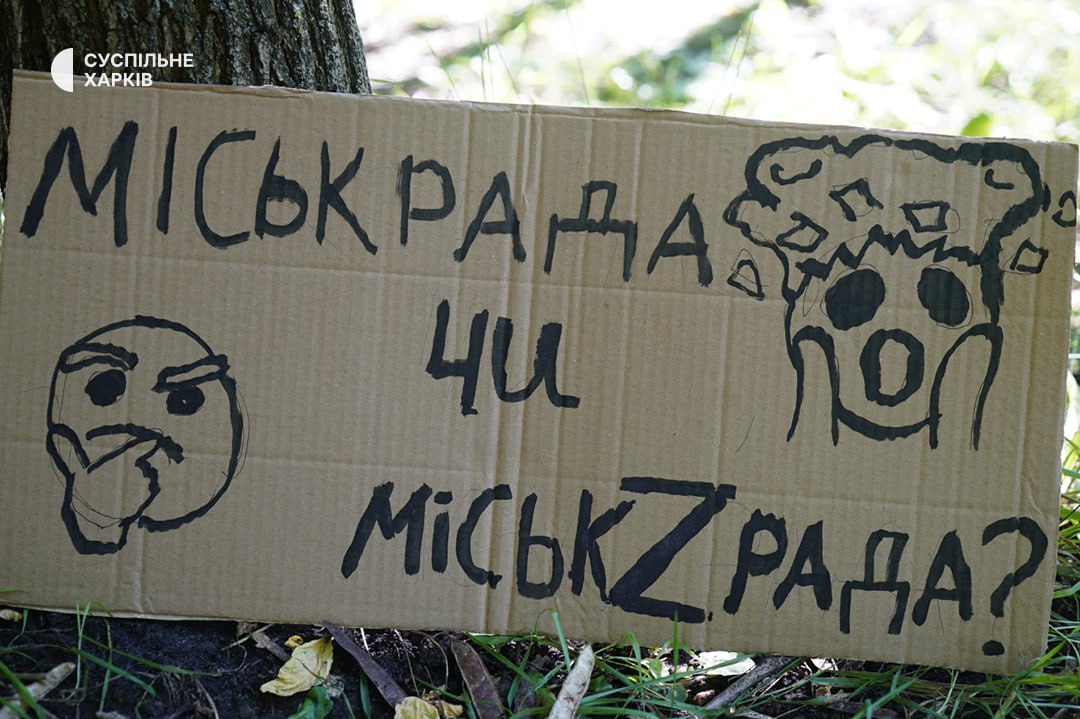 СУСПІЛЬНЕ
ХАРКІВ
МІСЬКРАДА
ЧИ
МІСЬКZРАДА?